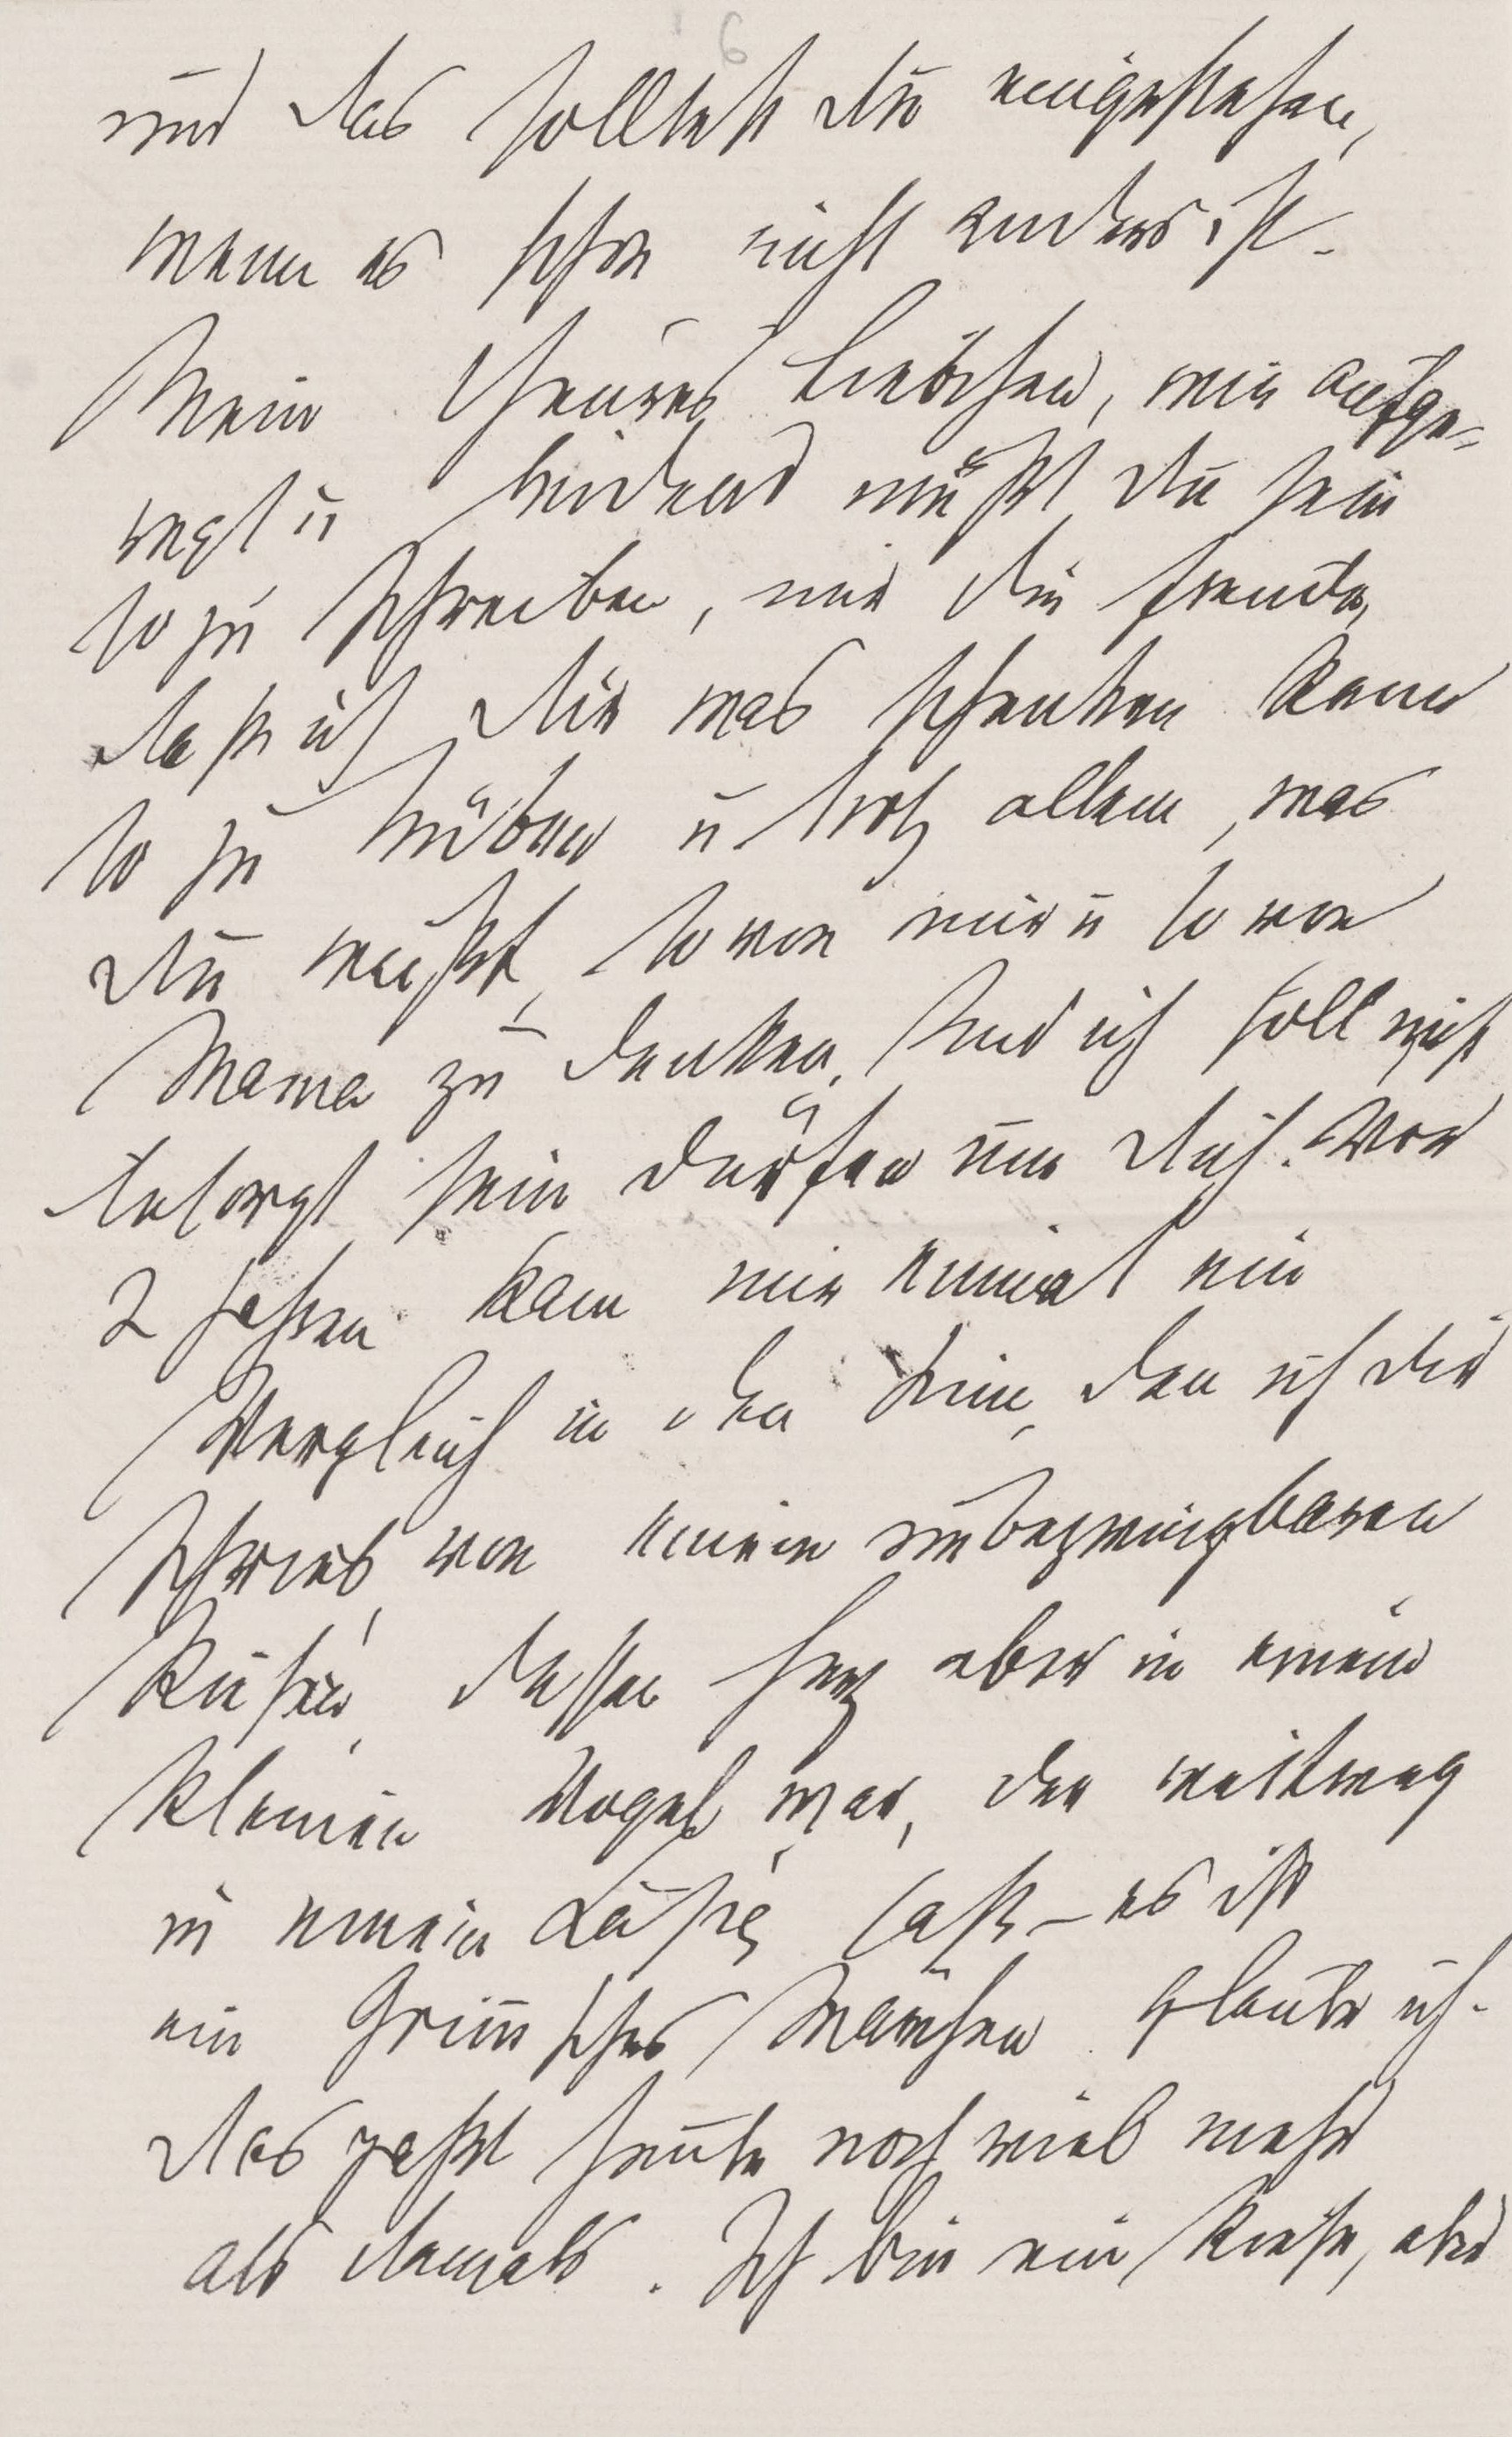 6
und das solltest Du eingestehen,
wenn es schon nicht anders ist.
Mein theures Liebchen, wie aufge-
regt u leidend mußt Du sein
so zu schreiben, mir die Freude,
daß ich Dir was schenken kann
so zu trüben u trotz allem, was
Du weißt, so von mir u so von
Mama zu denken. Und ich soll nicht
besorgt sein dürfen um Dich. Vor
2 Jahren kam mir einmal ein
Vergleich in den Sinn, den ich Dir
schrieb, von einem unbezwingbaren
Riesen, dessen Herz aber in einem
kleinen Vogel war, der weitweg
in einem Käfig saß – es ist
ein Grimmsches Märchen glaube ich.
Das paßt heute noch viel mehr
als damals. Ich bin ein Riese, aber